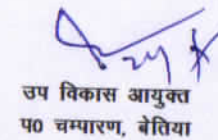 उप विकास आयुक्त
प0 चम्पारण, बेतिया